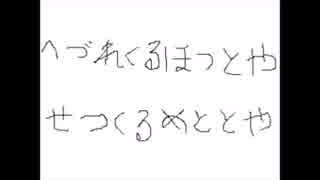 へづれくるほっとや
せつくるめととや